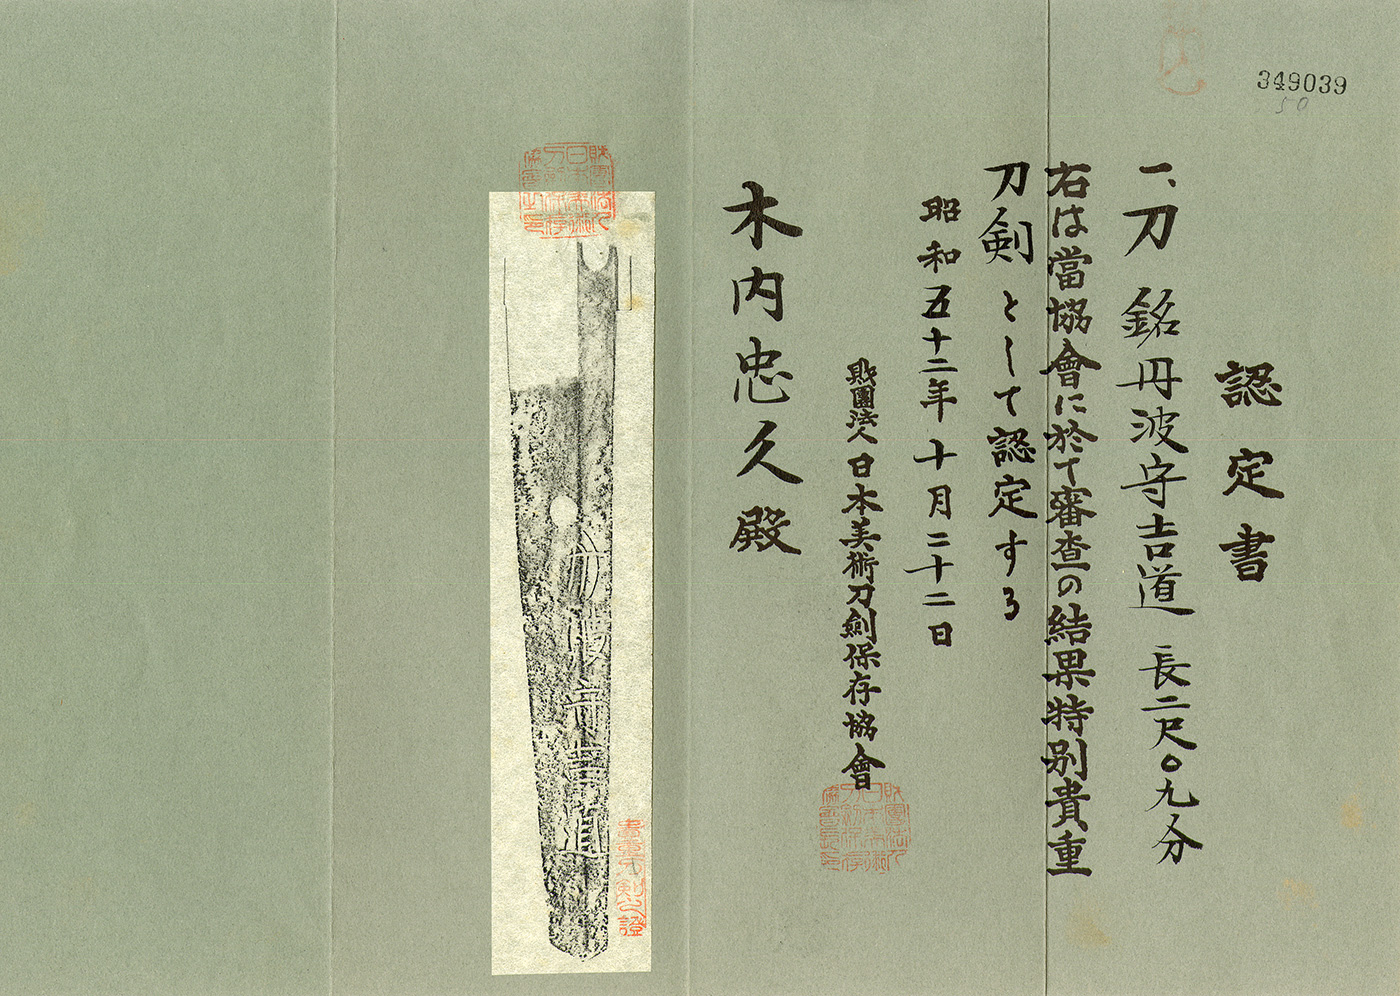 349039
50
認定書
一、刀 銘丹波守吉道 長二尺〇九分
右は當協會に於て審査の結果特別貴重
刀剣として認定する
昭和五十二年十月二十二日
財團法人日本美術刀劍保存協會
木内忠久殿
丹波守吉道